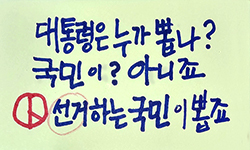 대통령은 누가 뽑나?
국민이? 아니죠
선거하는 국민이 뽑죠